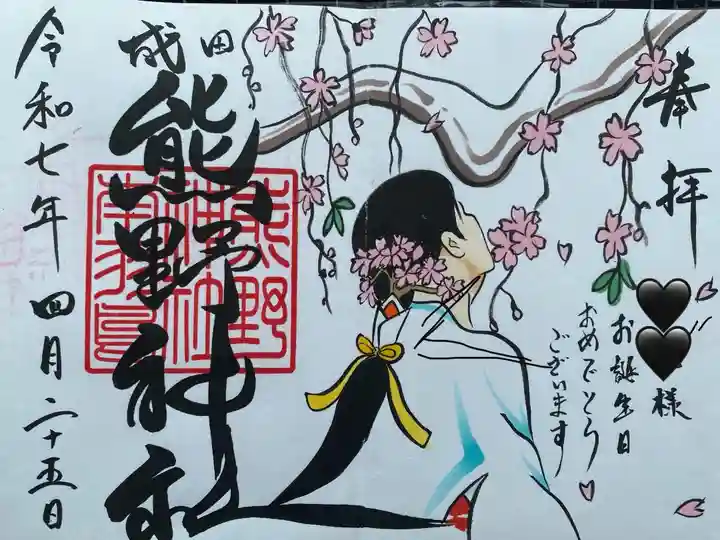 奉拝
様
お誕生日
おめでとう
ございます
成田
熊野神社
令和七年四月二十五日